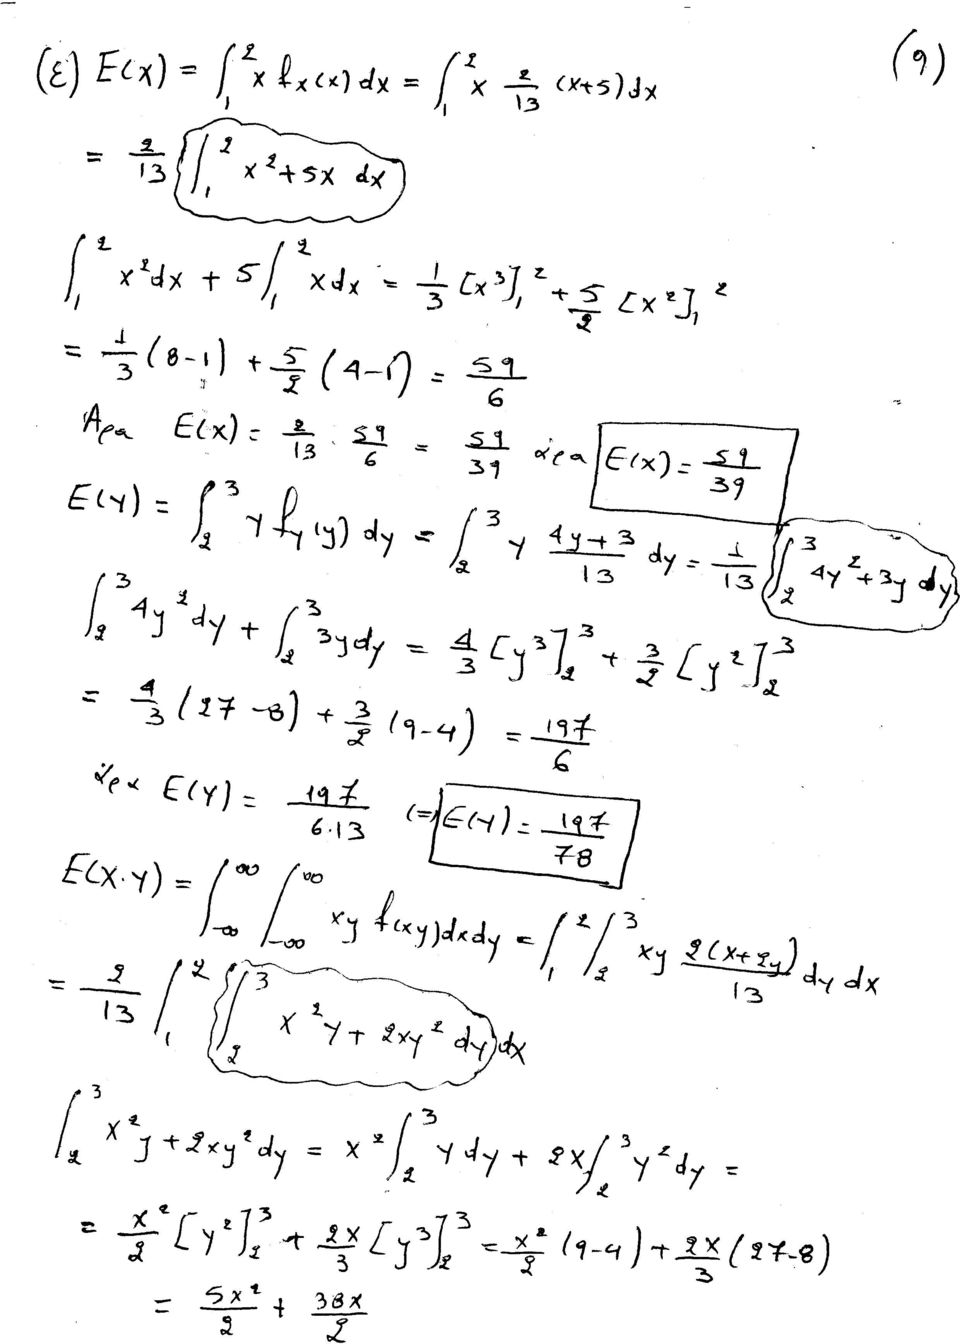 (9)
(ε) E(x) = ∫₁² x fₓ(x) dx = ∫₁² x 2/13 (x+5) dx
= 2/13 ∫₁² x²+5x dx
∫₁² x²dx + 5∫₁² xdx = 1/3 [x³]₁² + 5/2 [x²]₁²
= 1/3 (8-1) + 5/2 (4-1) = 59/6
Άρα E(x) = 2/13 · 59/6 = 59/39 άρα E(x) = 59/39
E(Y) = ∫₂³ y f_Y(y) dy = ∫₂³ y (4y+3)/13 dy = 1/13 ∫₂³ 4y²+3y dy
∫₂³ 4y²dy + ∫₂³ 3ydy = 4/3 [y³]₂³ + 3/2 [y²]₂³
= 4/3 (27-8) + 3/2 (9-4) = 197/6
άρα E(Y) = 197/6·13 (=) E(Y) = 197/78
E(X·Y) = ∫_-∞^∞ ∫_-∞^∞ xy f(xy)dxdy = ∫₁² ∫₂³ xy 2(x+2y)/13 dy dx
= 2/13 ∫₁² ∫₂³ x²y + 2xy² dy dx
∫₂³ x²y + 2xy² dy = x² ∫₂³ y dy + 2x ∫₂³ y² dy =
= x²/2 [y²]₂³ + 2x/3 [y³]₂³ = x²/2 (9-4) + 2x/3 (27-8)
= 5x²/2 + 38x/2